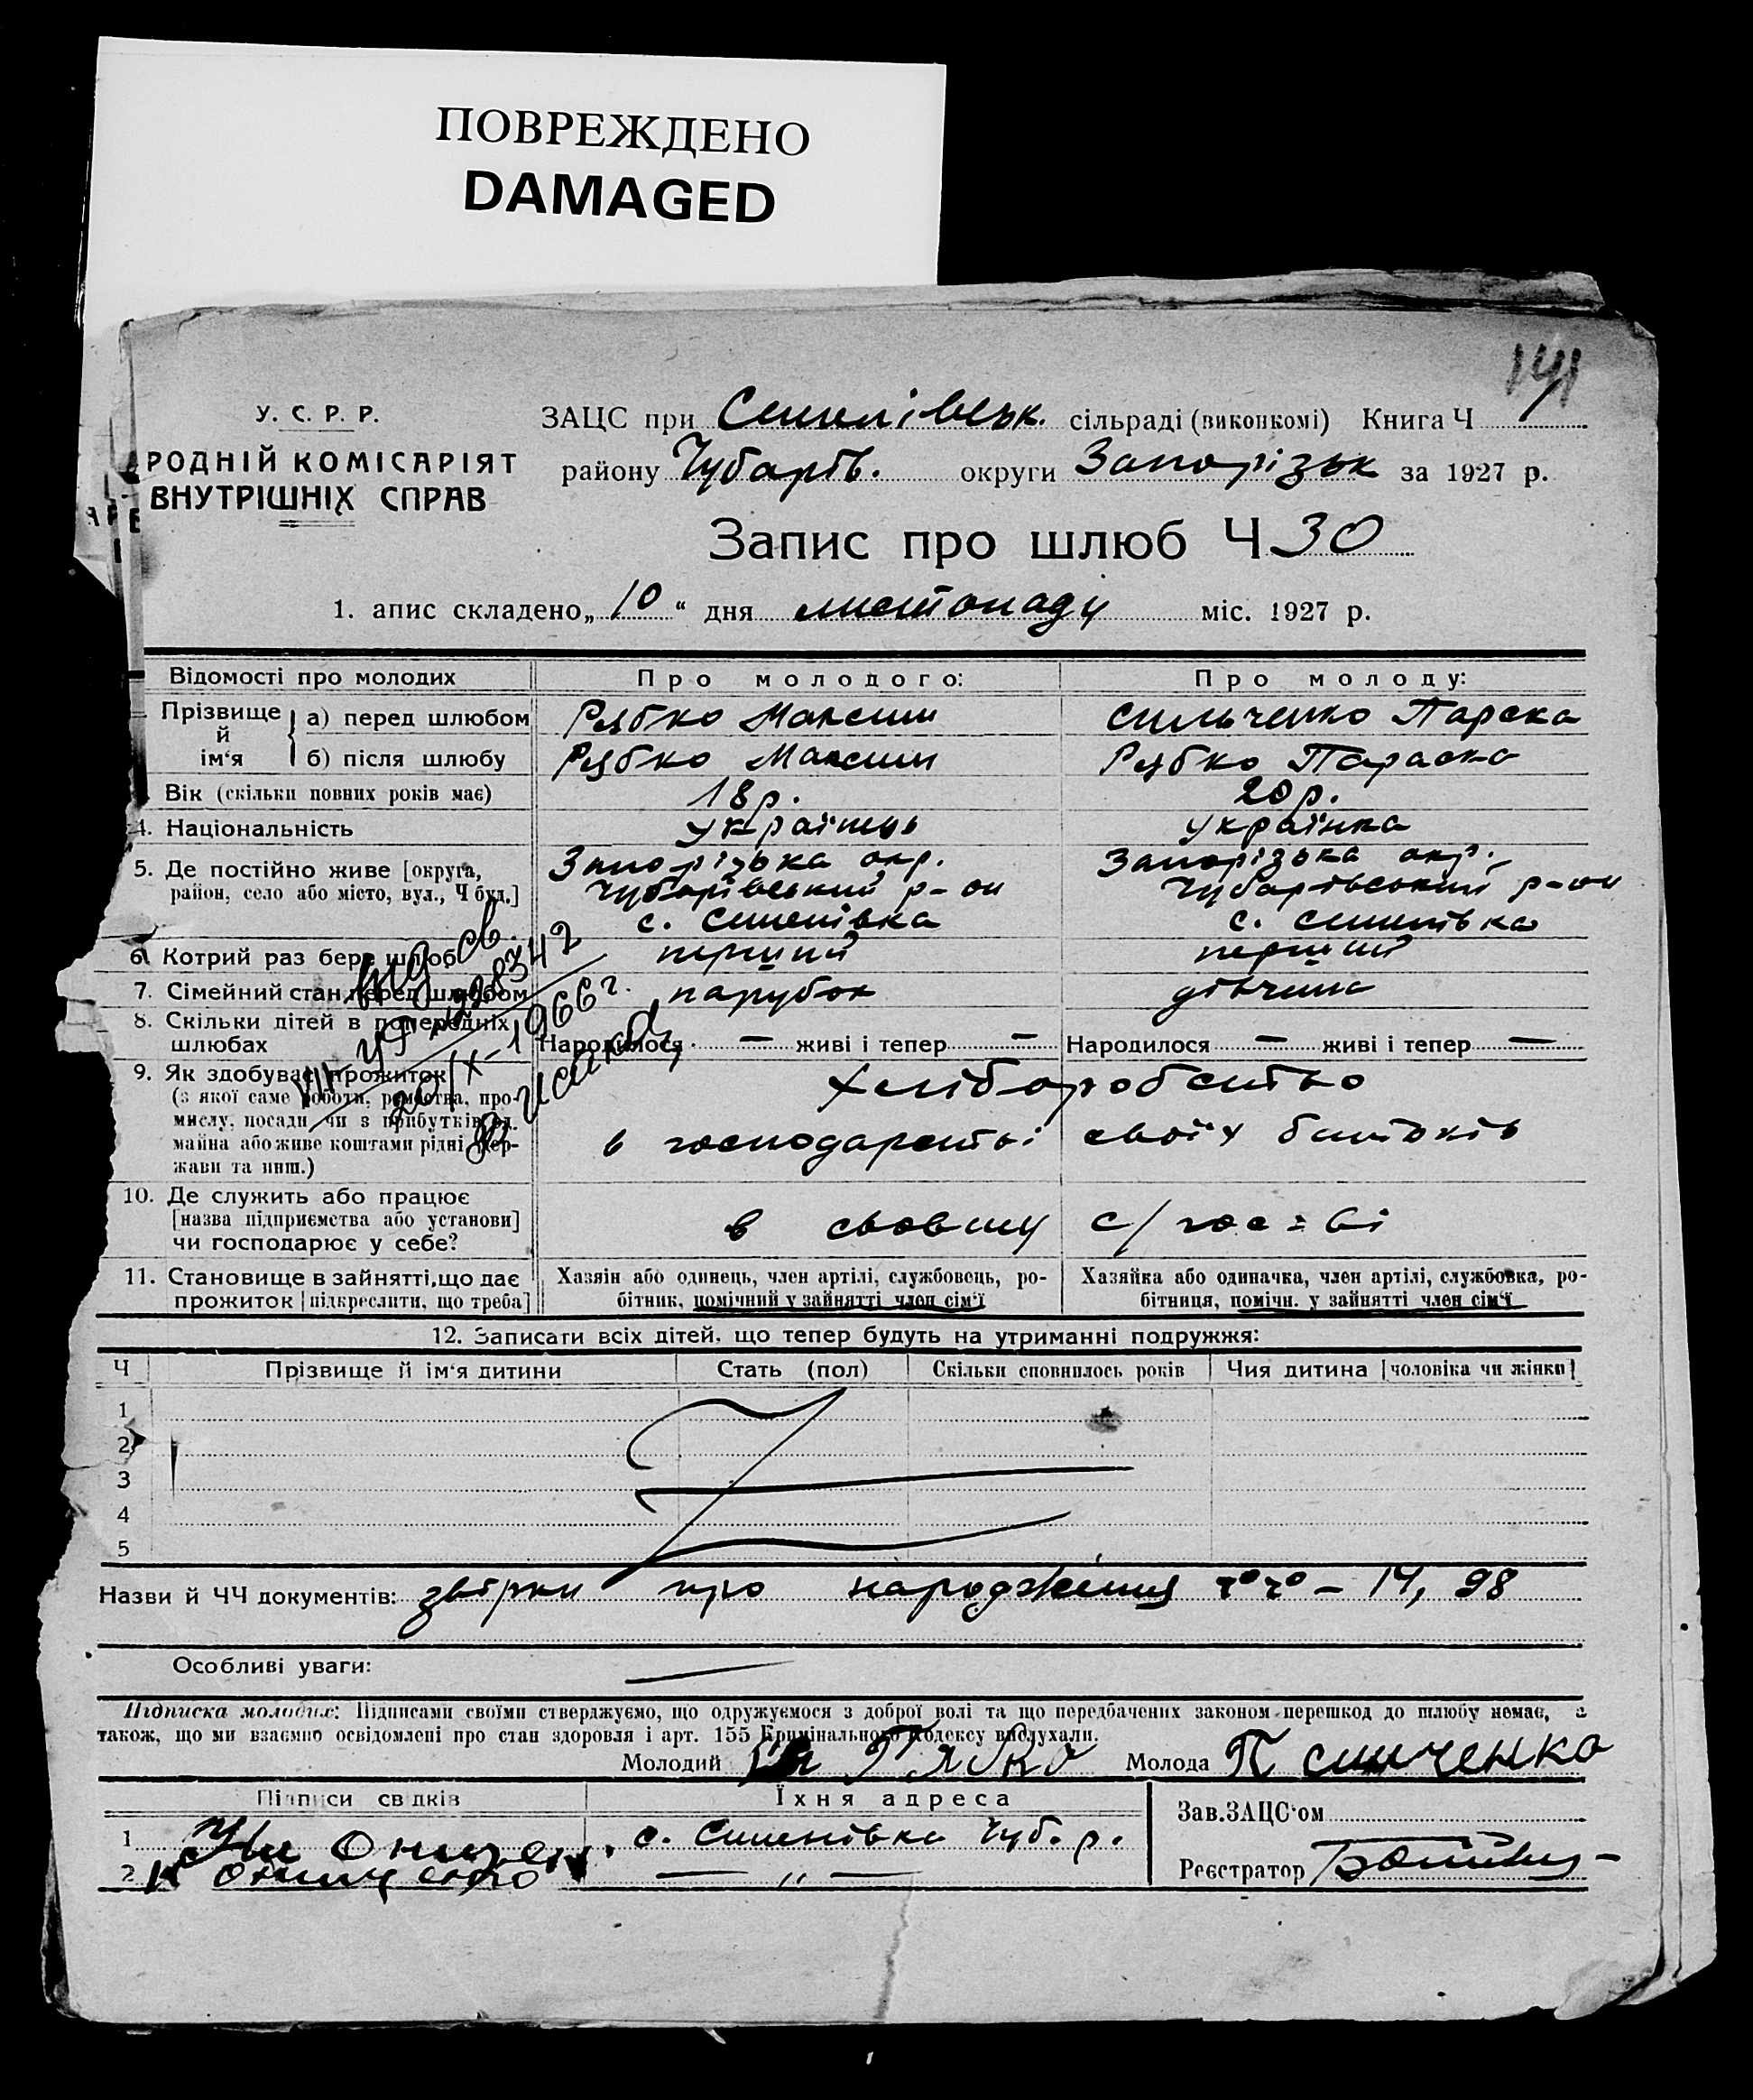 ПОВРЕЖДЕНО
DAMAGED
141
У. С. Р. Р.
РОДНІЙ КОМІСАРІЯТ
ВНУТРІШНІХ СПРАВ
ЗАЦС при сільраді (виконкомі) Книга Ч
району Чубарів. округи Запорізьк за 1927 р.
Запис про шлюб Ч 30
1. апис складено „ 10 “ дня листопаду міс. 1927 р.
Відомості про молодих Про молодого: Про молоду:
Прізвище й ім‘я а) перед шлюбом Рябко Максим Сильченко Параска
б) після шлюбу Рябко Максим Рябко Параска
Вік (скільки повних років має) 18 р. 20 р.
4. Національність українець українка
5. Де постійно живе [округа, Запорізька окр. Запорізька окр.,
район, село або місто, вул., Ч буд.] Чубарівський р-он Чубарівський р-он
с. с.
6. Котрий раз бере шлюб перший перший
7. Сімейний стан перед шлюбом парубок дівчина
8. Скільки дітей в попередніх
шлюбах Народилося — живі і тепер — Народилося — живі і тепер —
9. Як здобуває прожиток Хліборобство
(з якої саме роботи, ремества, про-
мислу, посади чи з прибутків од
майна або живе коштами рідні, дер- в господарстві своїх батьків
жави та инш.)
20/IX-1966 г.
10. Де служить або працює
[назва підприємства або установи] в своєму с/гос=ві
чи господарює у себе?
11. Становище в зайнятті, що дає Хазяін або одинець, член артілі, службовець, ро- Хазяйка або одиначка, член артілі, службовка, ро-
прожиток [підкреслити, що треба] бітник, помічний у зайнятті член сім‘ї бітниця, помічн. у зайнятті член сім‘ї
12. Записати всіх дітей, що тепер будуть на утриманні подружжя:
Ч Прізвище й ім‘я дитини Стать (пол) Скільки сповнилось років Чия дитина [чоловіка чи жінки]
1
2
3
4
5
Назви й ЧЧ документів: про народження ч°ч° – 14, 98
Особливі уваги:
Підписка молодих: Підписами своїми стверджуємо, що одружуємося з доброї волі та що передбачених законом перешкод до шлюбу немає, а
також, що ми взаємно освідомлені про стан здоровля і арт. 155 Кримінального Кодексу вислухали.
Молодий Рябко Молода П синченко
Підписи свідків Їхня адреса
Зав. ЗАЦС‘ом
1 с. Чуб. р.
2 — „ —
Реєстратор